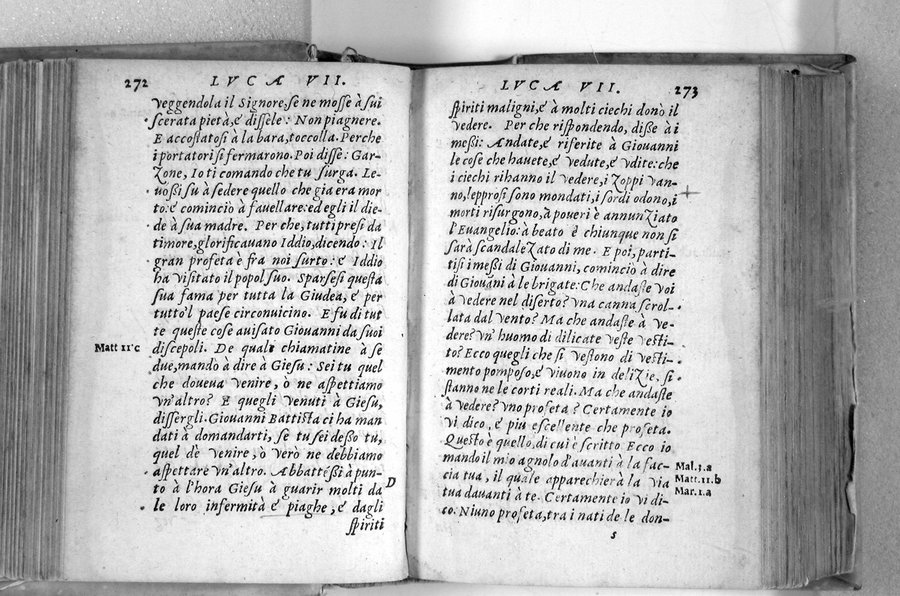 272 LVCAE VII.
veggendola il Signore, se ne mosse à sui
scerata pietà, é dissele: Non piagnere.
E accostatosi à la bara, toccolla. Perche
i portatori si fermarono. Poi disse: Gar-
zone, Io ti comando che tu surga. Le-
vossi su à sedere quello che gia era mor
to: é cominciò à fauellare: ed egli il die-
de à sua madre. Per che, tutti presi da
timore, glorificauano Iddio, dicendo: Il
gran profeta è fra noi surto: é Iddio
ha visitato il popol suo. Sparsesi questa
sua fama per tutta la Giudea, é per
tutto'l paese circonuicino. E fu di tut
te queste cose auisato Giouanni da suoi
Matt 11 c
discepoli. De quali chiamatine à se
due, mandò à dire à Giesu: Sei tu quel
che doueua venire, ò ne aspettiamo
vn'altro? E quegli venuti à Giesu,
dissergli. Giouanni Battista ci ha man
dati à domandarti, se tu sei desso tu,
quel de venire, ò verò ne debbiamo
aspettare vn'altro. Abbattéssi à pun-
to à l'hora Giesu à guarir molti da
D
le loro infermità é piaghe, é dagli
spiriti
LVCAE VII. 273
spiriti maligni, é à molti ciechi donò il
vedere. Per che rispondendo, disse à i
messi: Andate, é riferite à Giouanni
le cose che hauete, é vedute, é vdite: che
i ciechi rihanno il vedere, i zoppi van-
no, leprosi sono mondati, i sordi odono, i
morti risurgono, à poueri è annunziato
l'Euangelio: à beato è chiunque non si
sarà scandalezato di me. E poi, parti-
tisi i messi di Giouanni, cominciò à dire
di Giouāni à le brigate: Che andaste voi
à vedere nel diserto? vna canna scrol-
lata dal vento? Ma che andaste à ve-
dere? vn' huomo di dilicate veste vesti-
to? Ecco quegli che si vestono di vesti-
mento pomposo, é viuono in delizie, si
stanno ne le corti reali. Ma che andaste
à vedere? vno profeta? Certamente io
vi dico, é piu escellente che profeta.
Questo è quello, di cui è scritto Ecco io
mando il mio agnolo d'auanti à la fac-
Mal.3.a
cia tua, il quale apparechierà la via
Matt.11.b
tua dauanti à te. Certamente io vi di-
Mar.1.a
co. Niuno profeta, tra i nati de le don-
s